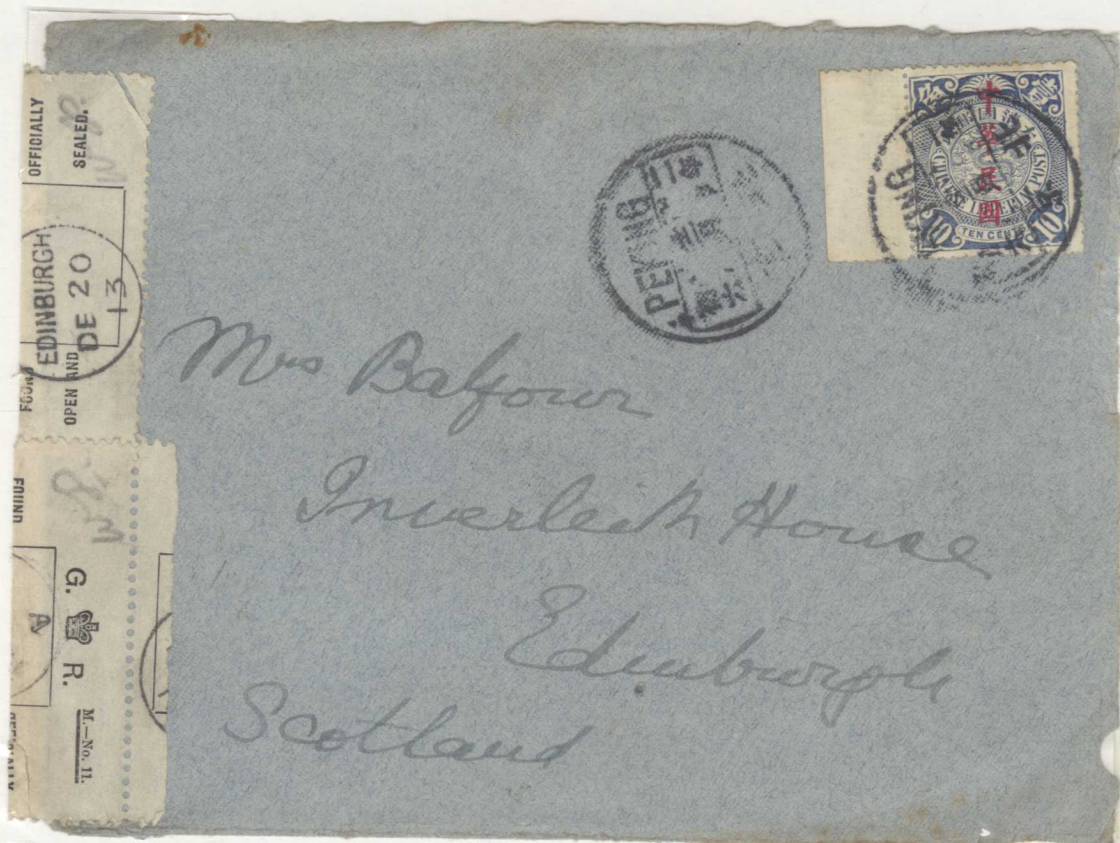 OFFICIALLY
SEALED.
EDINBURGH
DE 20
13
FOUND
OPEN AND
FOUND
G. R.
M.—No. 11.
OFFICIALLY
PEKING
中華民國
CHINESE IMPERIAL POST
10 TEN CENTS 10
PEKING
Mrs Balfour
Inverleith House
Edinburgh
Scotland